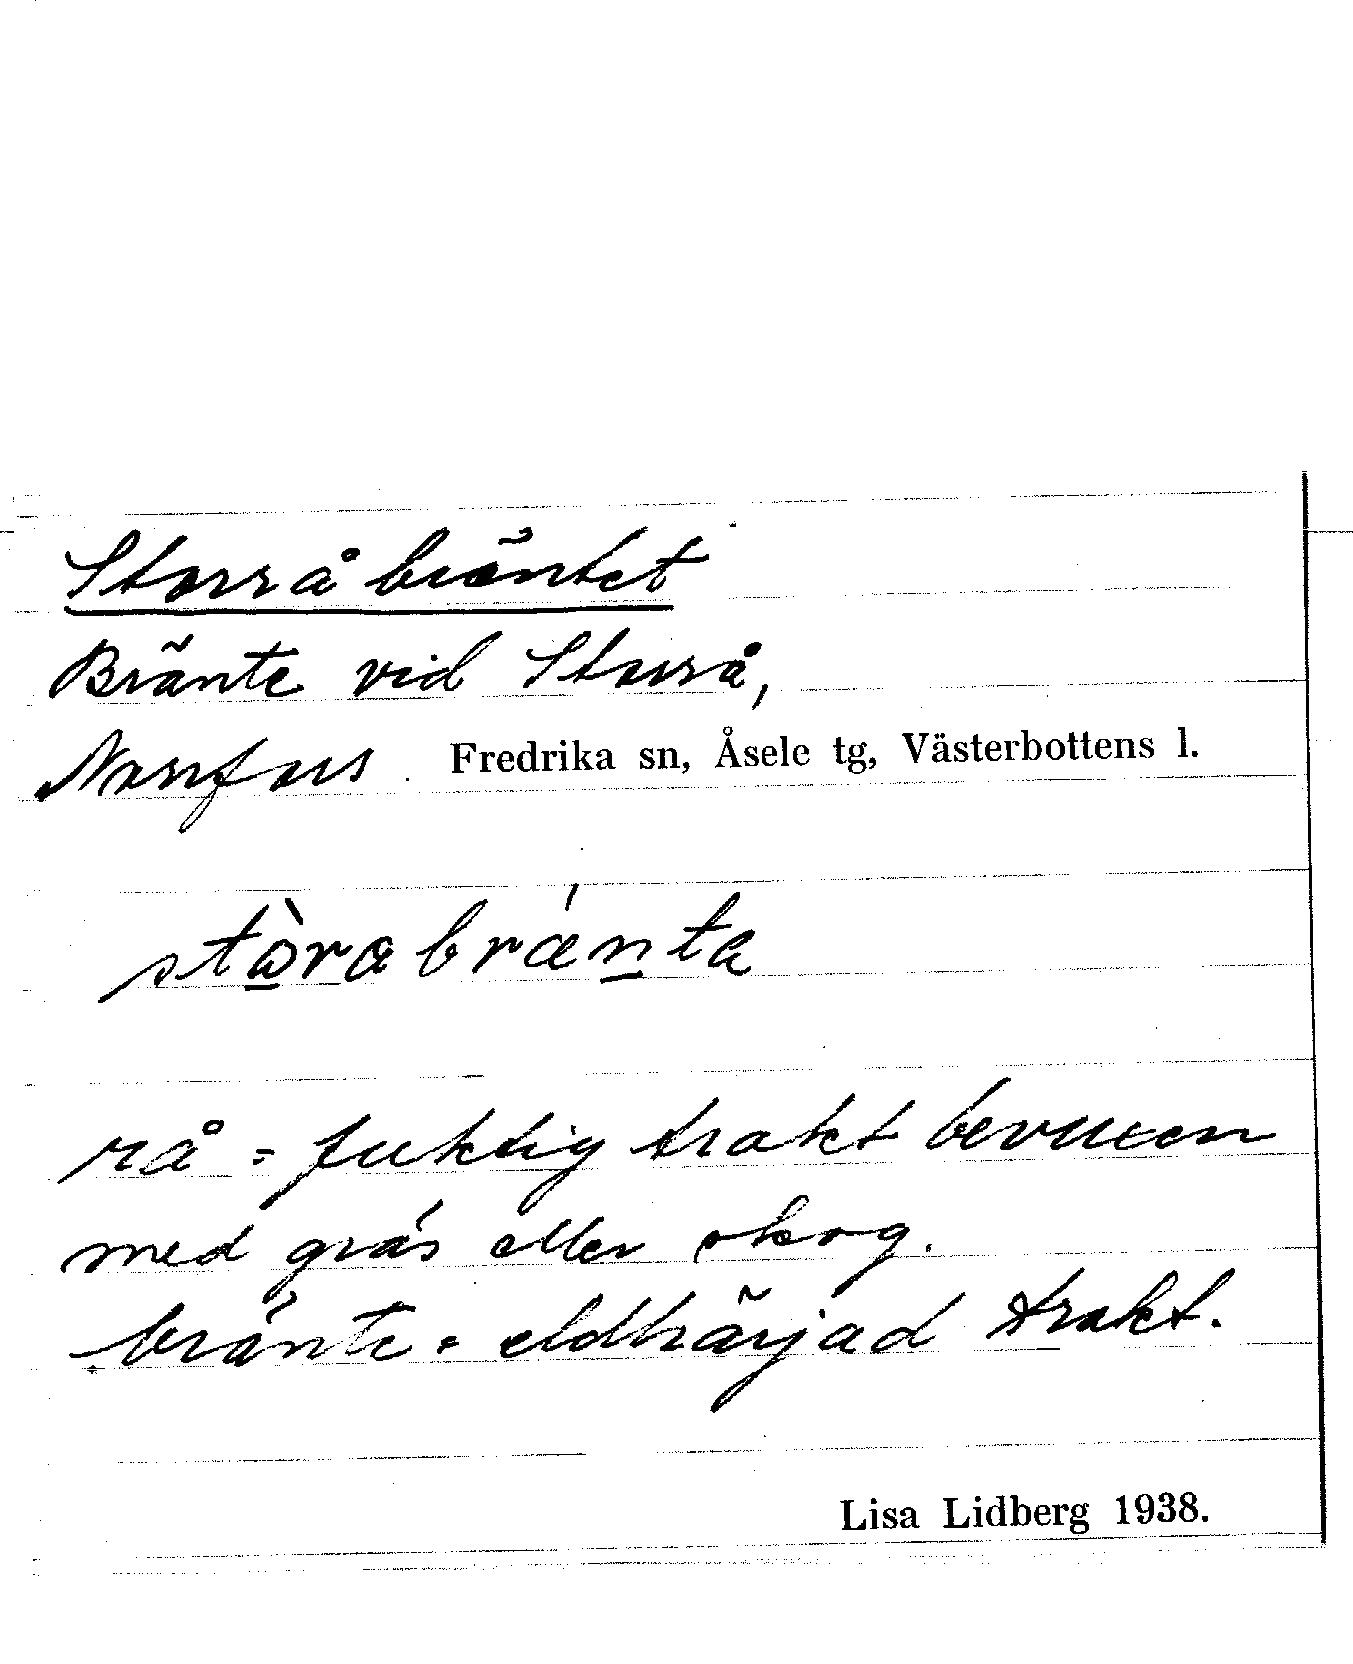 Storråbräntet
Bränte vid Storrå,
Norrfors Fredrika sn, Åsele tg, Västerbottens l.
stòrabrænta
rå = fuktig trakt bevuxen
med gräs eller skog.
bränte = eldhärjad trakt.
Lisa Lidberg 1938.